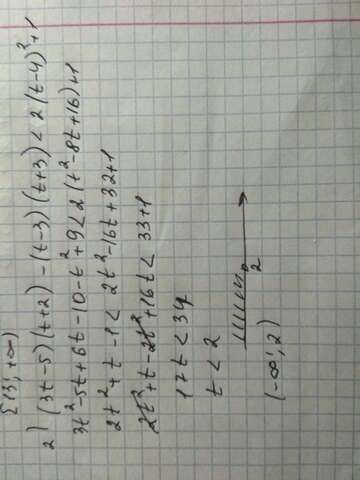 [3; +∞)
2) (3t-5)(t+2)-(t-3)(t+3)<2(t-4)²+1
3t²-5t+6t-10-t²+9<2(t²-8t+16)+1
2t²+t-1<2t²-16t+32+1
2t²+t-2t²+16t<33+1
17t<34
t<2
2
(-∞; 2)